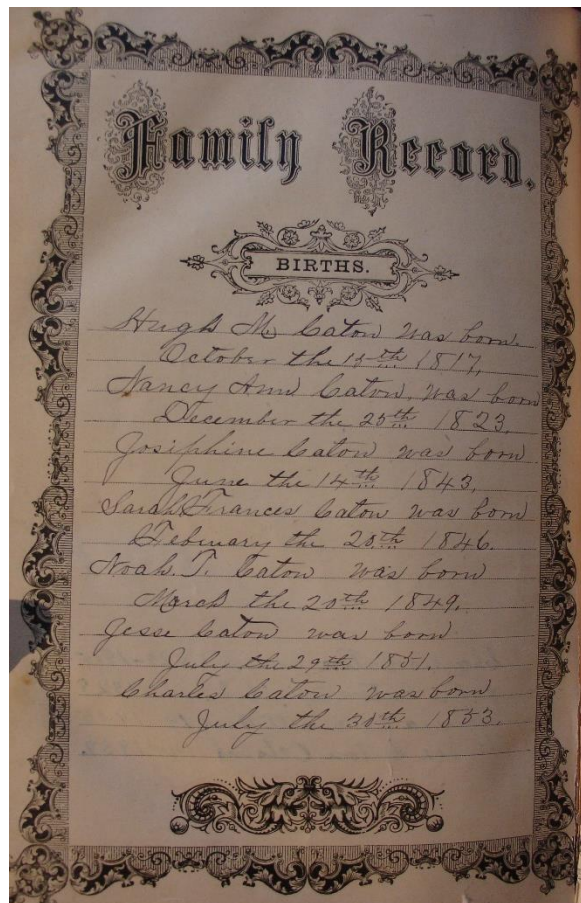 Family Record.
BIRTHS.
Hugh M. Caton was born
October the 15th 1817.
Nancy Ann Caton, was born
December the 25th 1823.
Josiphine Caton was born
June the 14th 1843.
Sarah Frances Caton was born
Febinary the 20th 1846.
Noah. T. Caton was born
March the 20th 1849.
Jesse Caton was born
July the 29th 1851.
Charles Caton was born
July the 30th 1853.